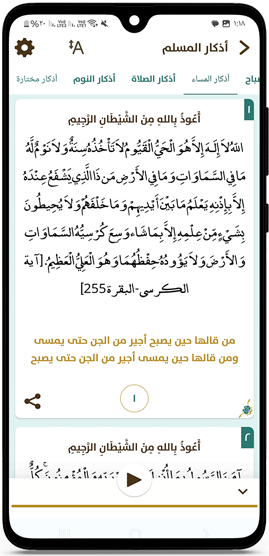 ١:١٨
٢٠%
أذكار المسلم
باح
أذكار المساء
أذكار الصلاة
أذكار النوم
أذكار مختارة
١
أَعُوذُ بِاللهِ مِنَ الشَّيْطَانِ الرَّجِيمِ
اللهُ لاَ إِلَهَ إِلاَّ هُوَ الْحَيُّ الْقَيُّومُ لاَ تَأْخُذُهُ سِنَةٌ وَلاَ نَوْمٌ لَّهُ
مَا فِي السَّمَاوَاتِ وَمَا فِي الأَرْضِ مَن ذَا الَّذِي يَشْفَعُ عِنْدَهُ
إِلاَّ بِإِذْنِهِ يَعْلَمُ مَا بَيْنَ أَيْدِيهِمْ وَمَا خَلْفَهُمْ وَلاَ يُحِيطُونَ
بِشَيْءٍ مِّنْ عِلْمِهِ إِلاَّ بِمَا شَاء وَسِعَ كُرْسِيُّهُ السَّمَاوَاتِ
وَالأَرْضَ وَلاَ يَؤُودُهُ حِفْظُهُمَا وَهُوَ الْعَلِيُّ الْعَظِيمُ. [آية
الكرسى-البقرة 255]
من قالها حين يصبح أجير من الجن حتى يمسى
ومن قالها حين يمسى أجير من الجن حتى يصبح
١
٢
أَعُوذُ بِاللهِ مِنَ الشَّيْطَانِ الرَّجِيمِ